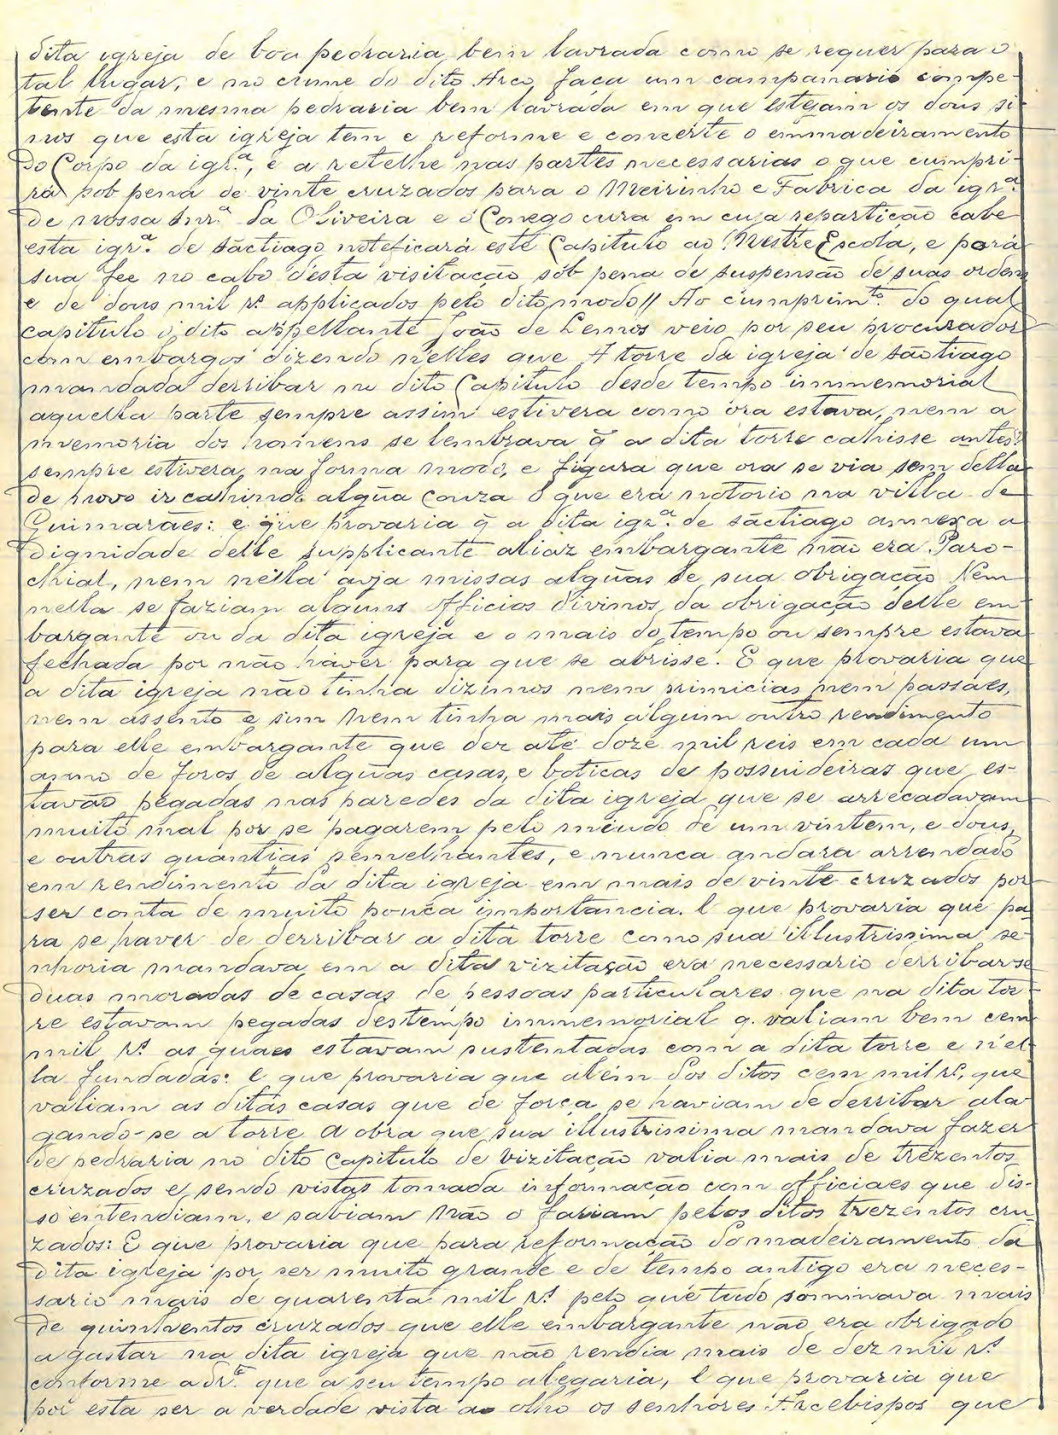 dita igreja de boa pedraria bem lavrada como se requer para o
tal lugar, e no cume do dito Arco faça um campanario compe-
tente da mesma pedraria bem lavrada em que estejam os dous si-
nos que esta igreja tem e reforme e concerte o emmadeiramento
do Corpo da igr.ª, e a retelhe nas partes necessarias o que cumpri-
rá sob pena de vinte cruzados para o Meirinho e Fabrica da igr.ª
de nossa Snr.ª da Oliveira e o Conego cura em cuja repartição cabe
esta igr.ª de sãctiago noteficará este Capitulo ao Mestre Escola, e porá
sua fee no cabo d'esta visitação sob pena de suspensão de suas ordens
e de dous mil r.s applicados pelo dito modo // Ao cumprim.to do qual
capitulo o dito appellante João de Lemos veio por seu procurador
com embargos dizendo nelles que A torre da igreja de sãotiago
mandada derribar no dito Capitulo desde tempo immemorial
aquella parte sempre assim estivera como ora estava, nem a
memoria dos homens se lembrava q̃ a dita torre cahisse antes
sempre estivera na forma modo, e figura que ora se via sem della
de novo ir cahindo algũa couza o que era notorio na villa de
Guimarães: e que provaria q̃ a dita igr.ª de sãctiago annexa a
Dignidade delle supplicante aliàz embargante não era Paro-
chial, nem nella avja missas algũas de sua obrigação Nem
nella se faziam alguns officios divinos, da obrigação delle em-
bargante ou da dita igreja e o mais do tempo ou sempre estava
fechada por não haver para que se abrisse. E que provaria que
a dita igreja não tinha dizimos nem primicias nem passaes,
nem assento e sim Nem tinha mais algum outro rendimento
para elle embargante que dez até doze mil reis em cada um
anno de foros de algũas casas, e boticas de possuideiras que es-
tavão pegadas nas paredes da dita igreja que se arrecadavam
muito mal por se pagarem pelo miudo de um vintem, e dous,
e outras quantias semelhantes, e nunca andara arrendado
em rendimento da dita igreja em mais de vinte cruzados por
ser conta de muito pouca importancia. E que provaria que pa-
ra se haver de derribar a dita torre como sua illustrissima se-
nhoria mandava em a dita vizitação era necessario derribar-se
duas moradas de casas de pessoas particulares que na dita tor-
re estavam pegadas destempo immemorial q. valiam bem cem
mil r.s as quaes estavam sustentadas com a dita torre e nel-
la fundadas: E que provaria que alem dos ditos cem mil r.s, que
valiam as ditas casas que de força se haviam de derribar ala-
gando-se a torre A obra que sua illustrissima mandava fazer
de pedraria no dito Capitulo de vizitação valia mais de trezentos
cruzados e, sendo vistas tomada informação com officiaes que dis-
so entendiam, e sabiam Não o fariam pelos ditos trezentos cru-
zados: E que provaria que para reformação do madeiramento da
dita igreja por ser muito grande e de tempo antigo era neces-
sario mais de quarenta mil r.s pelo que tudo sommava mais
de quinhentos cruzados que elle embargante não era obrigado
a gastar na dita igreja que não rendia mais de dez mil r.s
conforme a dr.to que a seu tempo alegaria, E que provaria que
por esta ser a verdade vista ao olho os senhores Arcebispos que